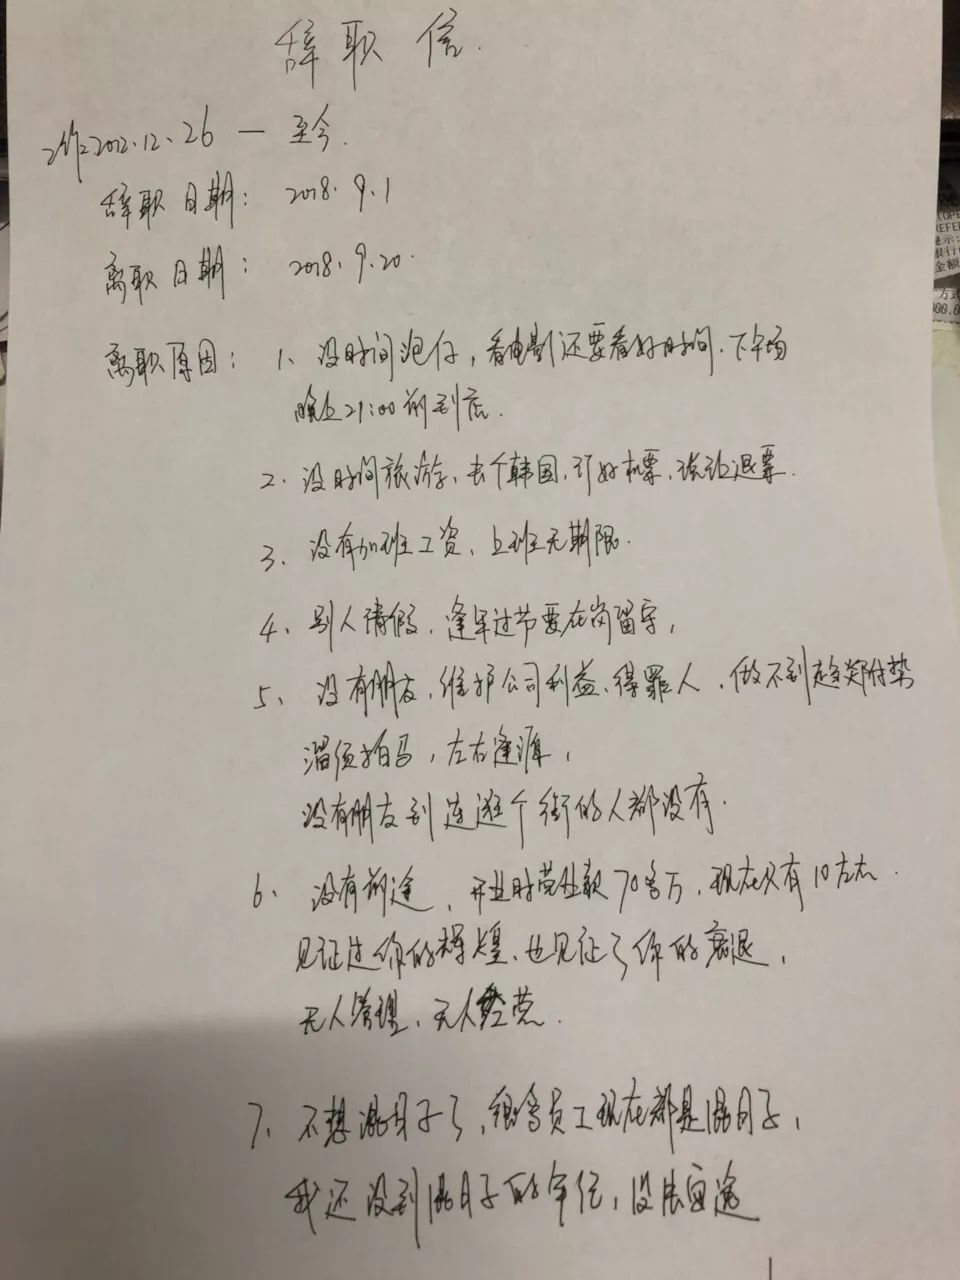 辞职信.
工作2012.12.26 — 至今.
辞职日期: 2018.9.1
离职日期: 2018.9.20.
离职原因: 1、没时间泡仔，看电影还要看好时间.下午场
晚上21:00前到店.
2、没时间旅游、去个韩国,订好机票,说让退票.
3、没有加班工资、上班无期限.
4、别人请假、逢年过节要在岗留守,
5、没有朋友,维护公司利益、得罪人,做不到趋炎附势
溜须拍马,左右逢源,
没有朋友到连逛个街的人都没有.
6、没有前途、开业时营业额70多万,现在只有10左右.
见证过你的辉煌、也见证了你的衰退,
无人管理、无人经营.
7、不想混日子了,很多员工现在都是混日子,
我还没到混日子的年纪,没法